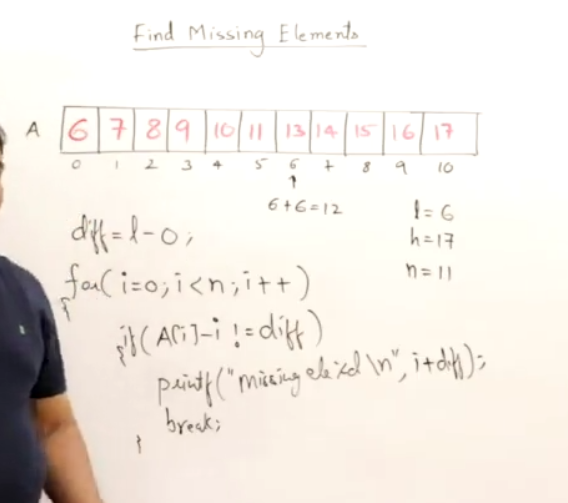 Find Missing Elements
A 6 7 8 9 10 11 13 14 15 16 17
0 1 2 3 4 5 6 7 8 9 10
↑
6+6=12
l=6
h=17
n=11
diff=l-0;
for(i=0;i<n;i++)
{
if(A[i]-i!=diff)
{
printf("missing ele %d\n",i+diff);
break;
}